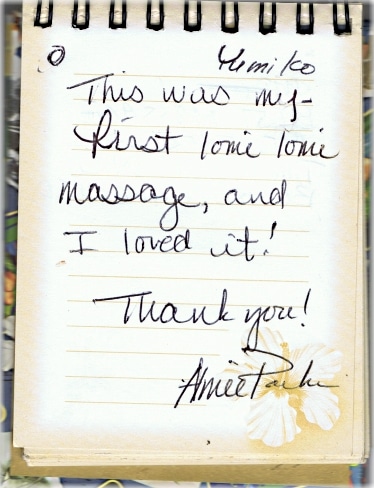 Yumiko
This was my
first lomi lomi
massage, and
I loved it!
Thank you!
Aimee Parker